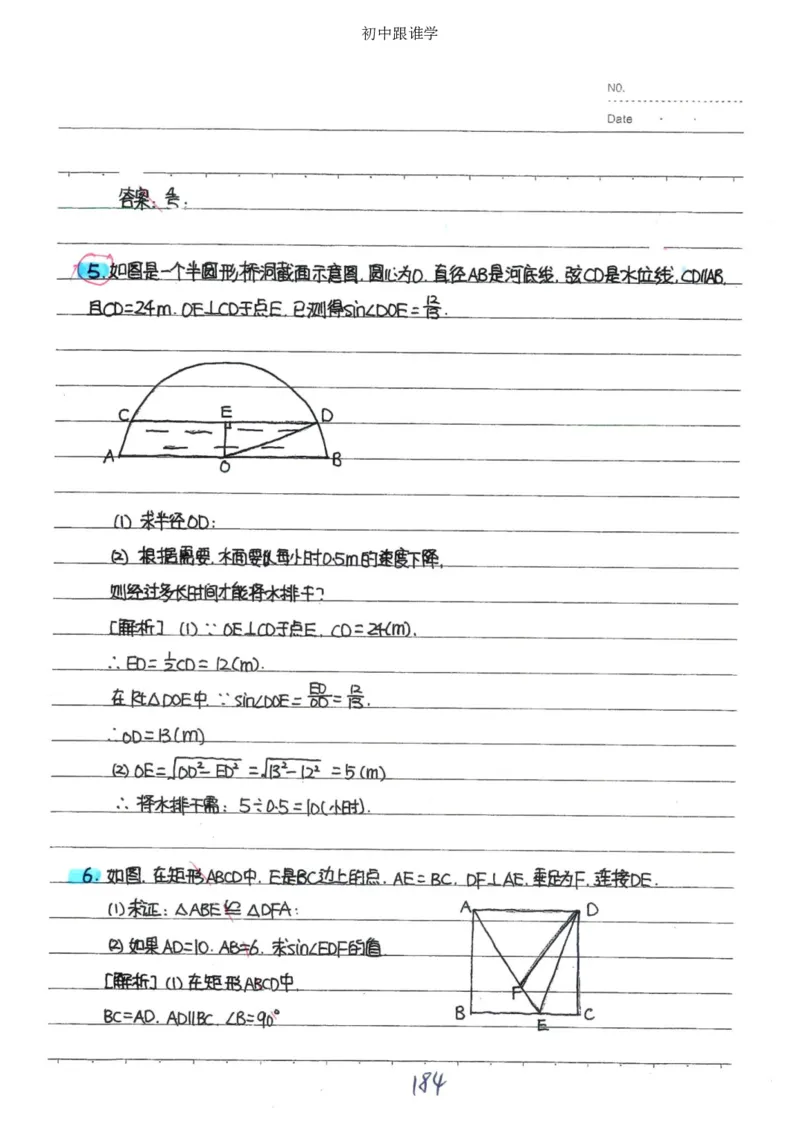 初中跟谁学
NO.
Date
答案：4/5.
5.如图是一个半圆形桥洞截面示意图,圆心为O,直径AB是河底线,弦CD是水位线,CD∥AB,
且CD=24m.OE⊥CD于点E.已测得sin∠DOE=12/13.
C E D
A O B
(1) 求半径OD;
(2) 根据需要,水面要以每小时0.5m的速度下降,
则经过多长时间才能将水排干?
[解析] (1)∵OE⊥CD于点E, CD=24(m),
∴ED=1/2CD=12(m).
在Rt△DOE中,∵sin∠DOE=ED/OD=12/13.
∴OD=13(m)
(2)OE=√OD²-ED² =√13²-12² =5(m)
∴将水排干需: 5÷0.5=10(小时).
6.如图,在矩形ABCD中,E是BC边上的点,AE=BC, DF⊥AE,垂足为F,连接DE.
(1)求证:△ABE≌△DFA;
(2)如果AD=10,AB=6,求sin∠EDF的值.
[解析](1)在矩形ABCD中,
BC=AD,AD∥BC,∠B=90°
A D
F
B C
E
184